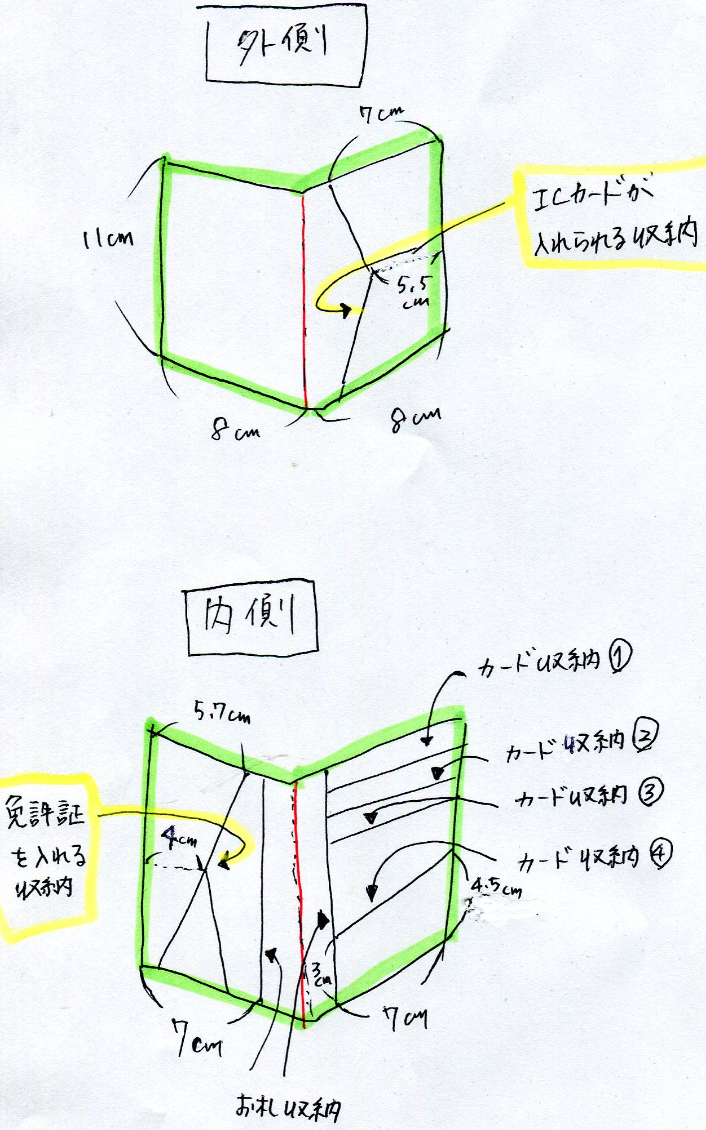 外側
7cm
ICカードが
入れられる収納
11cm
5.5
cm
8cm
8cm
内側
カード収納①
5.7cm
カード収納②
カード収納③
免許証
を入れる
収納
4cm
カード収納④
4.5cm
3cm
7cm
7cm
お札収納